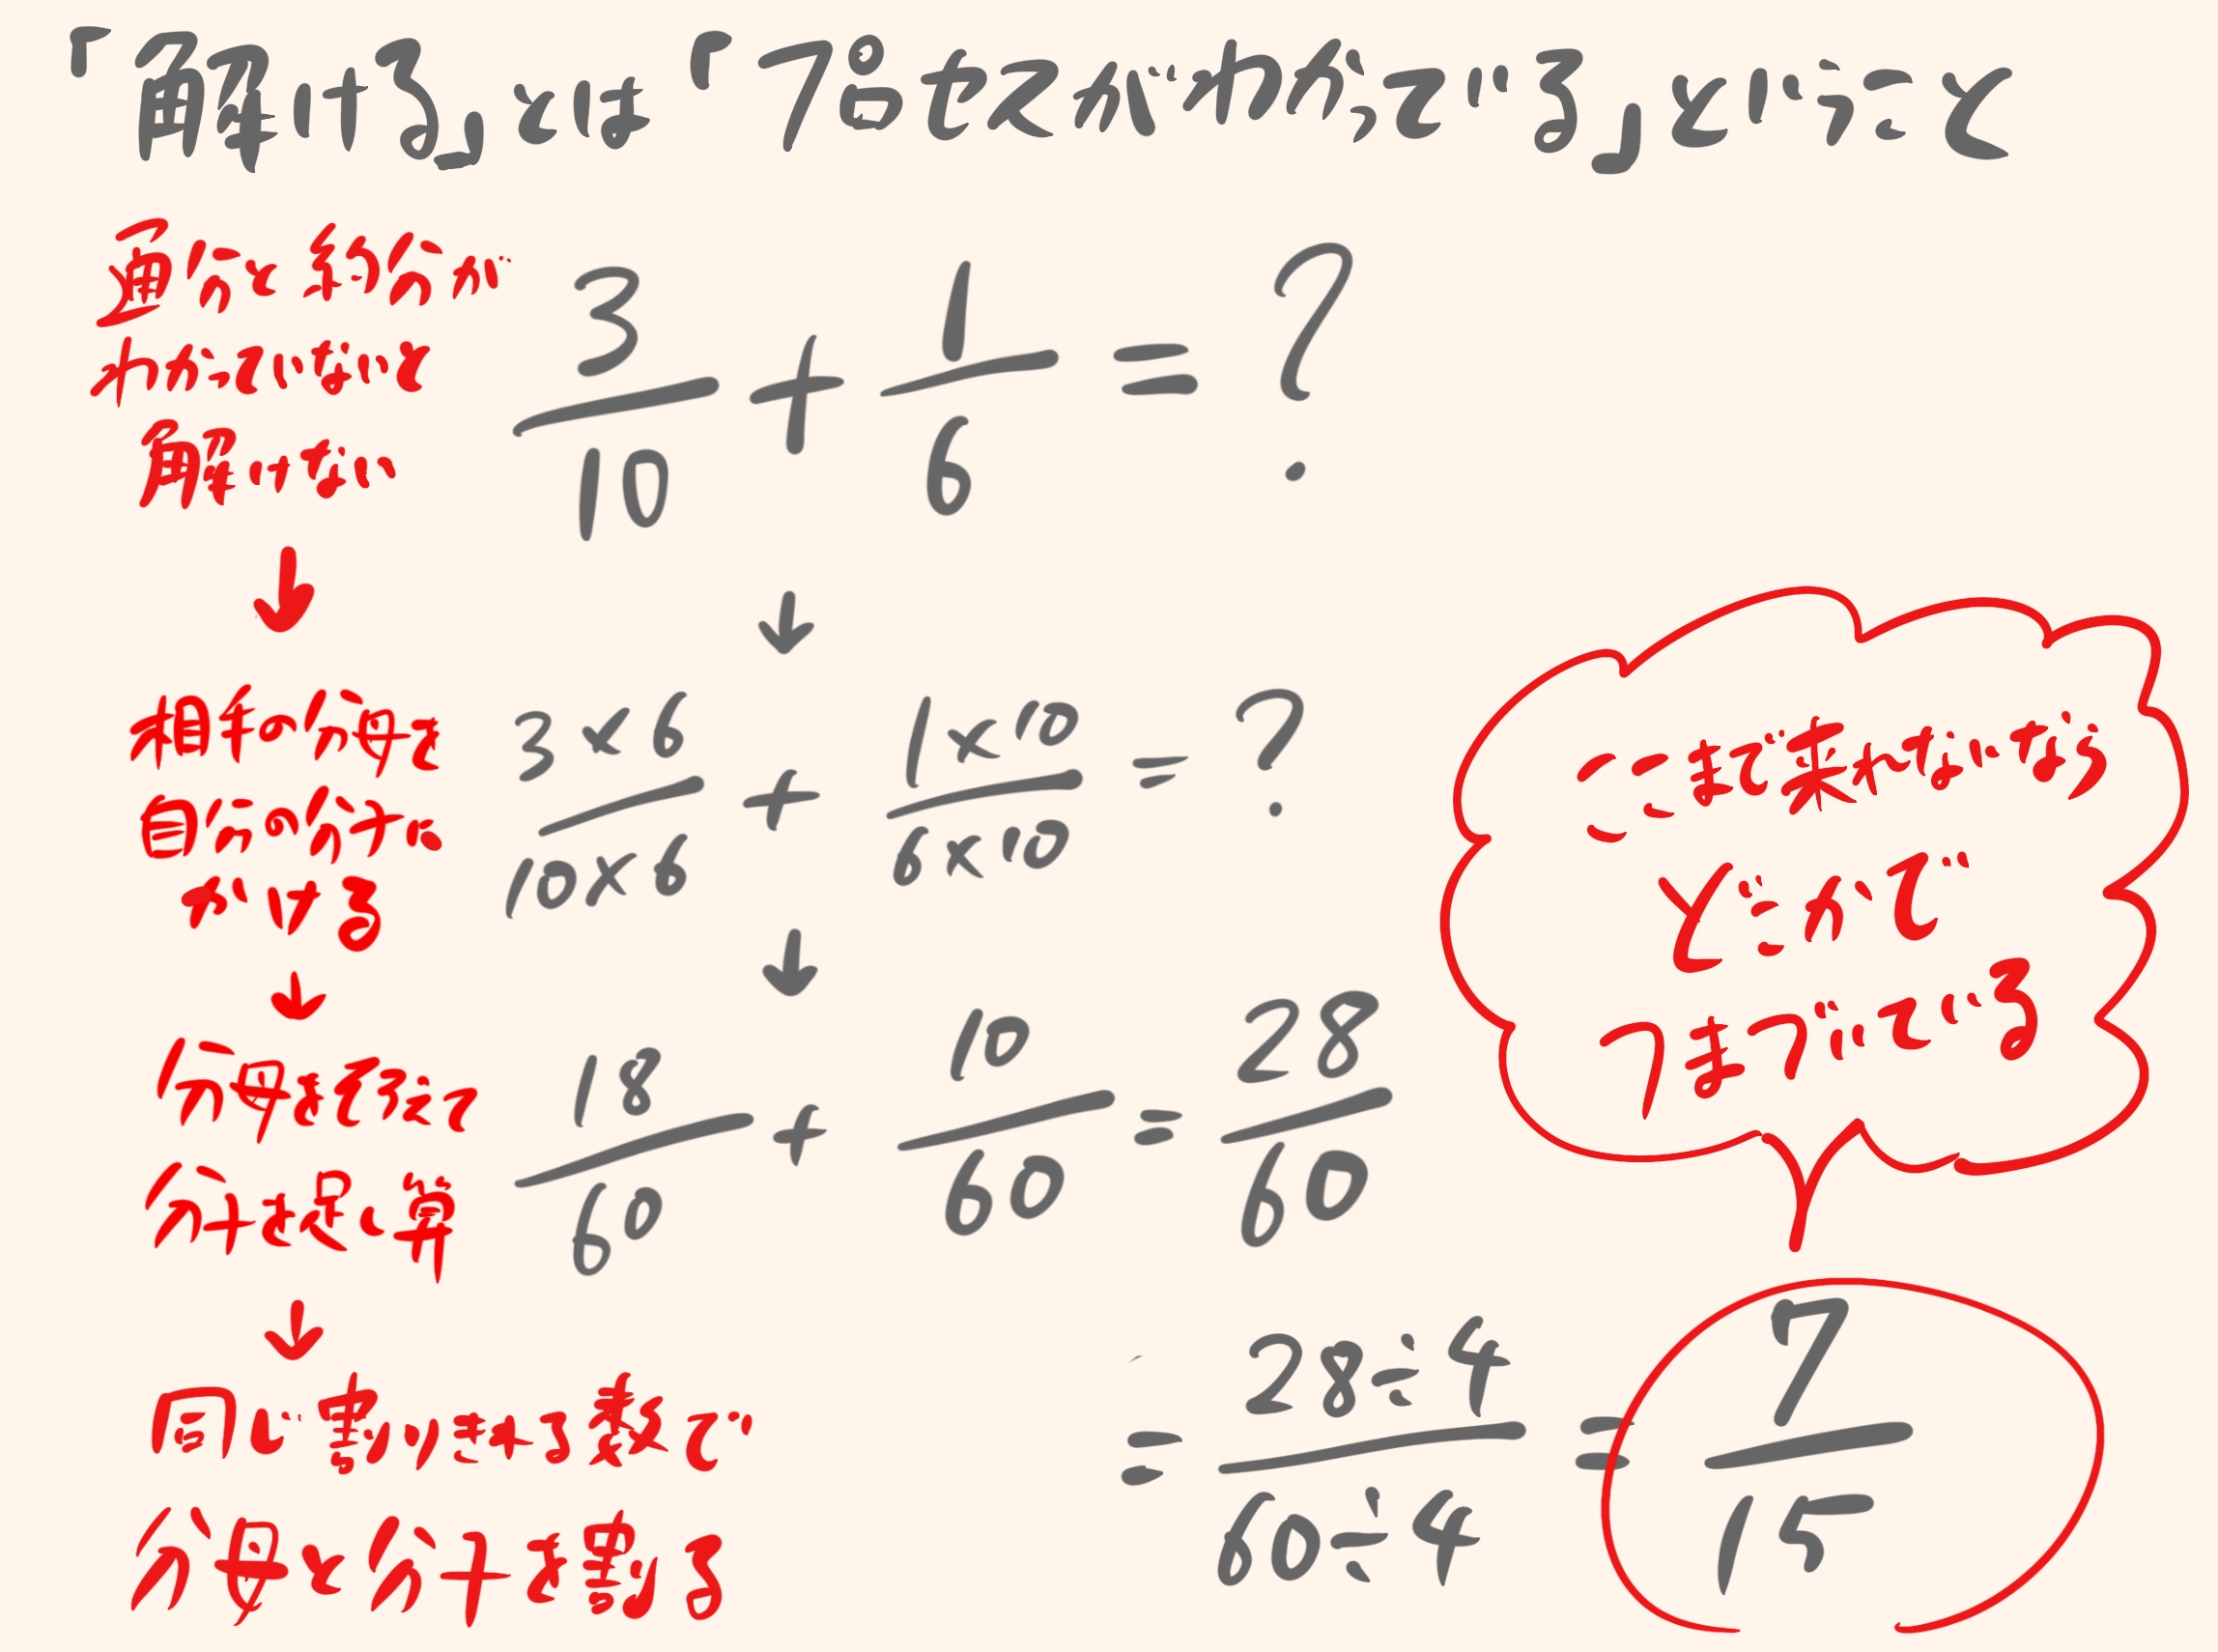 「解ける」とは「プロセスがわかっている」ということ
通分と約分が
わかっていないと
解けない
3/10 + 1/6 = ?
↓
↓
相手の分母を
自分の分子に
かける
3×6/10×6 + 1×10/6×10 = ?
↓
↓
分母をそろえて
分子を足し算
18/60 + 10/60 = 28/60
↓
同じ割りきれる数で
分母と分子を割る
= 28÷4/60÷4 = 7/15
ここまで来れないなら
どこかで
つまづいている